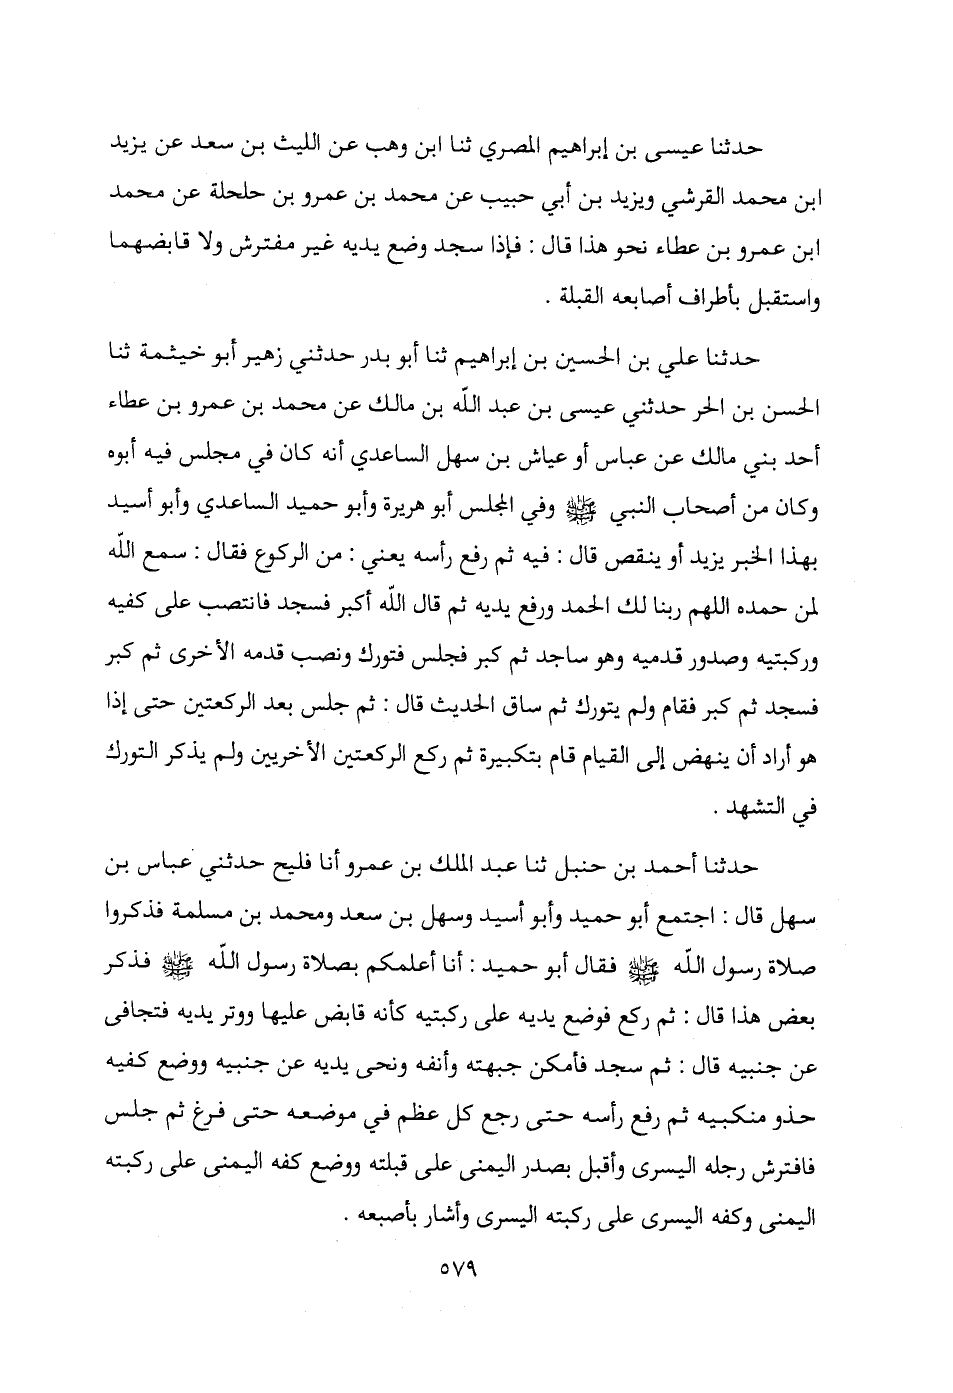 حدثنا عيسى بن إبراهيم المصري ثنا ابن وهب عن الليث بن سعد عن يزيد
ابن محمد القرشي ويزيد بن أبي حبيب عن محمد بن عمرو بن حلحلة عن محمد
ابن عمرو بن عطاء نحو هذا قال : فإذا سجد وضع يديه غير مفترش ولا قابضهما
واستقبل بأطراف أصابعه القبلة .
حدثنا علي بن الحسين بن إبراهيم ثنا أبو بدر حدثني زهير أبو خيثمة ثنا
الحسن بن الحر حدثني عيسى بن عبد اللّه بن مالك عن محمد بن عمرو بن عطاء
أحد بني مالك عن عباس أو عياش بن سهل الساعدي أنه كان في مجلس فيه أبوه
وكان من أصحاب النبي ﷺ وفي المجلس أبو هريرة وأبو حميد الساعدي وأبو أسيد
بهذا الخبر يزيد أو ينقص قال : فيه ثم رفع رأسه يعني : من الركوع فقال : سمع اللّه
لمن حمده اللهم ربنا لك الحمد ورفع يديه ثم قال اللّه أكبر فسجد فانتصب على كفيه
وركبتيه وصدور قدميه وهو ساجد ثم كبر فجلس فتورك ونصب قدمه الأخرى ثم كبر
فسجد ثم كبر فقام ولم يتورك ثم ساق الحديث قال : ثم جلس بعد الركعتين حتى إذا
هو أراد أن ينهض إلى القيام قام بتكبيرة ثم ركع الركعتين الأخريين ولم يذكر التورك
في التشهد .
حدثنا أحمد بن حنبل ثنا عبد الملك بن عمرو أنا فليح حدثني عباس بن
سهل قال : اجتمع أبو حميد وأبو أسيد وسهل بن سعد ومحمد بن مسلمة فذكروا
صلاة رسول اللّه ﷺ فقال أبو حميد : أنا أعلمكم بصلاة رسول اللّه ﷺ فذكر
بعض هذا قال : ثم ركع فوضع يديه على ركبتيه كأنه قابض عليها ووتر يديه فتجافى
عن جنبيه قال : ثم سجد فأمكن جبهته وأنفه ونحى يديه عن جنبيه ووضع كفيه
حذو منكبيه ثم رفع رأسه حتى رجع كل عظم في موضعه حتى فرغ ثم جلس
فافترش رجله اليسرى وأقبل بصدر اليمنى على قبلته ووضع كفه اليمنى على ركبته
اليمنى وكفه اليسرى على ركبته اليسرى وأشار بأصبعه .
٥٧٩